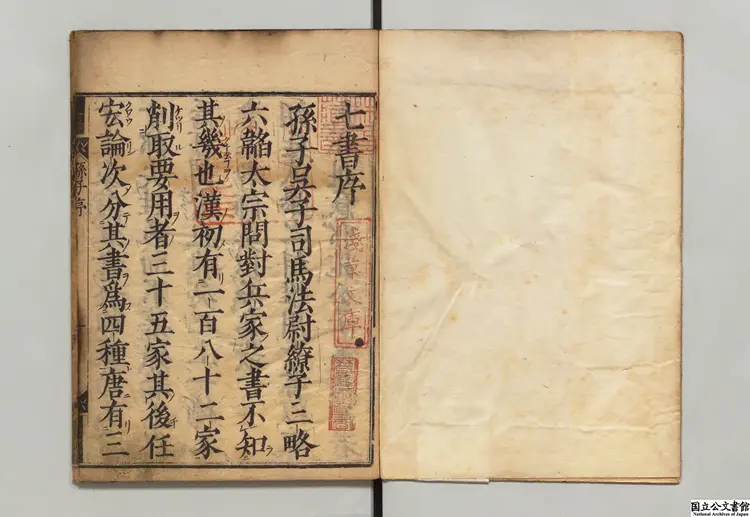 七書序
孫子吳子司馬法尉繚子三略
六韜太宗問對兵家之書不知
其幾也漢初有一百八十二家
刪取要用者三十五家其後任
宏論次分其書為四種唐有三
孫子序
淺草文庫
国立公文書館
National Archives of Japan